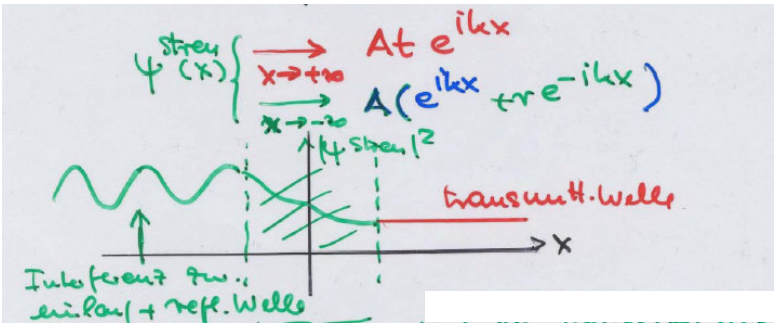 ψ^streu(x) { → x→+∞ A t e^{ikx}
→ x→-∞ A(e^{ikx} + r e^{-ikx})
|ψ^streu|²
transmitt. Welle
x
Interferenz zw.
einlauf + refl. Welle